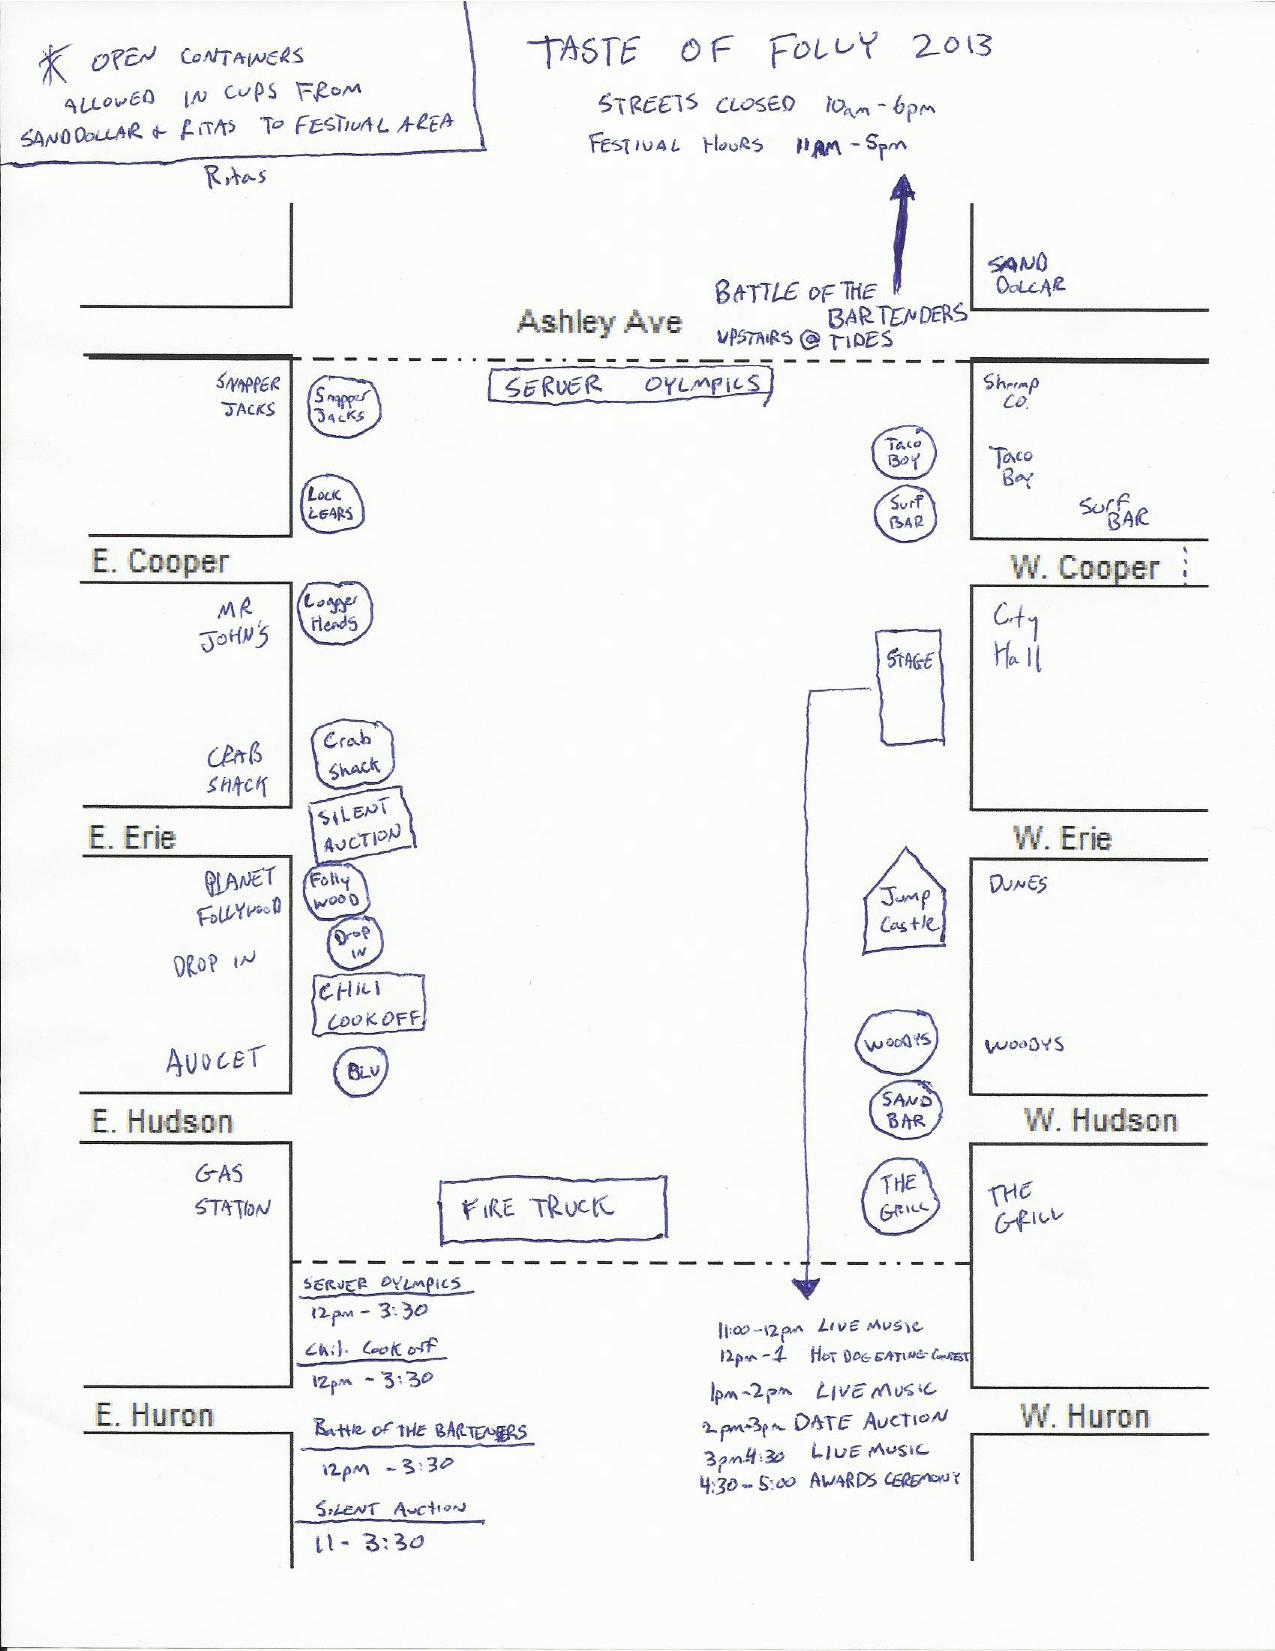 * OPEN CONTAINERS
ALLOWED IN CUPS FROM
SANDDOLLAR & RITAS TO FESTIVAL AREA
TASTE OF FOLLY 2013
STREETS CLOSED 10am-6pm
FESTIVAL HOURS 11AM-5pm
Ritas
SAND
DOLLAR
BATTLE OF THE
BARTENDERS
UPSTAIRS @ TIDES
Ashley Ave
SNAPPER
JACKS
Snapper
Jacks
SERVER OYLMPICS
Shrimp
CO.
Taco
BOY
Taco
Boy
LOCK
LEARS
Surf
BAR
Surf
BAR
E. Cooper
W. Cooper
MR
JOHN'S
Logger
Heads
City
Hall
STAGE
CRAB
SHACK
Crab
Shack
SILENT
AUCTION
E. Erie
W. Erie
PLANET
FOLLYWOOD
Folly
WOOD
DUNES
Jump
Castle
DROP IN
Drop
IN
CHILI
COOKOFF
AVOCET
BLU
WOODYS
WOODYS
SAND
BAR
E. Hudson
W. Hudson
GAS
STATION
FIRE TRUCK
THE
GRILL
THE
GRILL
SERVER OYLMPICS
12pm - 3:30
Chili Cook off
12pm - 3:30
Battle of THE BARTENDERS
12pm - 3:30
SILENT AUCTION
11 - 3:30
11:00-12pm LIVE MUSIC
12pm-1 HOT DOG EATING CONTEST
1pm-2pm LIVE MUSIC
2pm-3pm DATE AUCTION
3pm-4:30 LIVE MUSIC
4:30-5:00 AWARDS CEREMONY
E. Huron
W. Huron